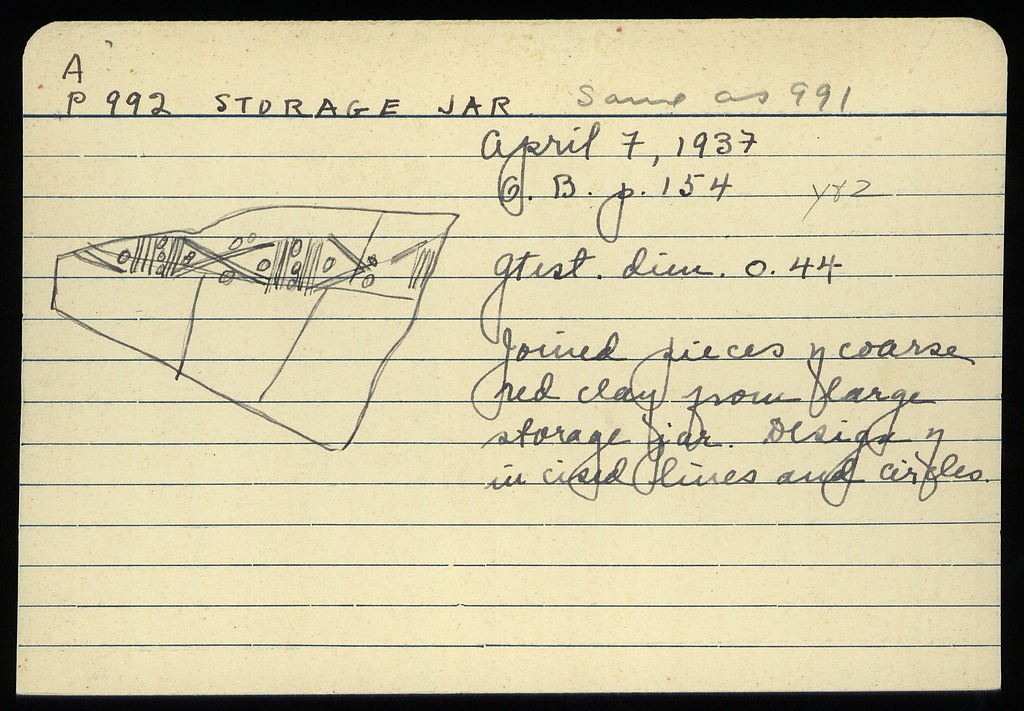 A
P 992 STORAGE JAR Same as 991
April 7, 1937
G. B. p. 154
gtest. dim. 0.44
Joined pieces of coarse
red clay from large
storage jar. Design of
incised lines and circles.